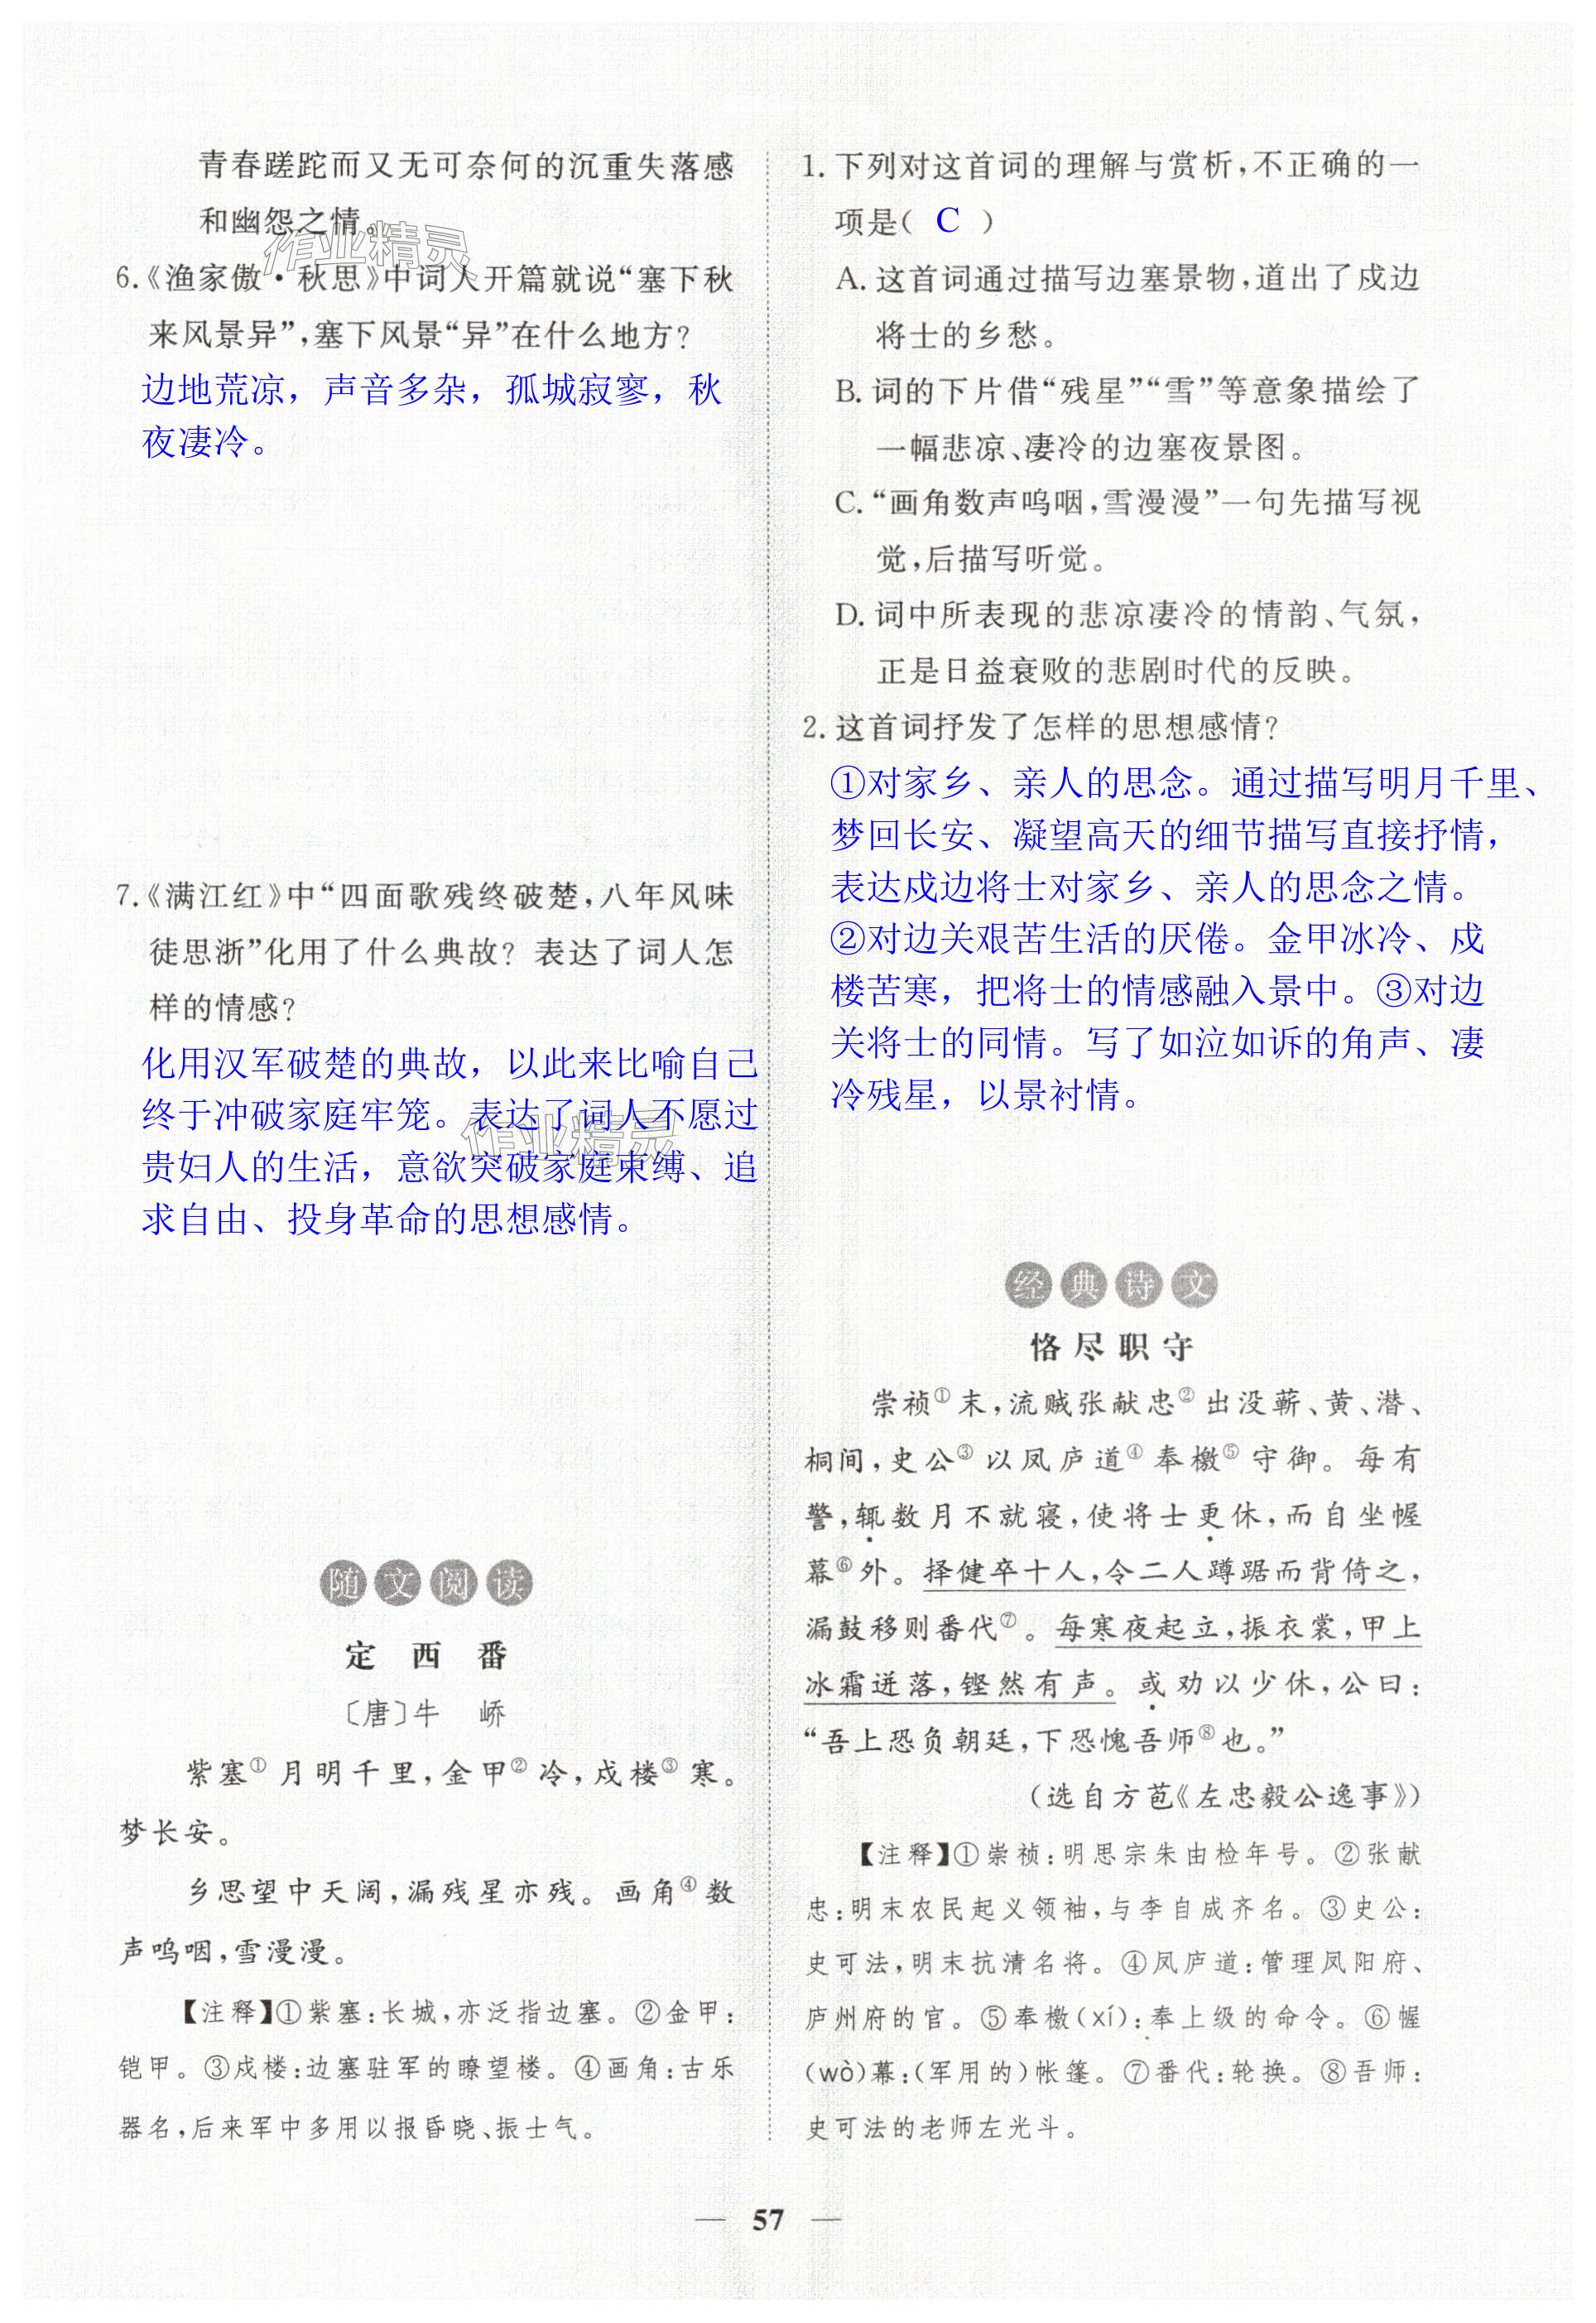 青春蹉跎而又无可奈何的沉重失落感
和幽怨之情。
作业精灵
6.《渔家傲·秋思》中词人开篇就说“塞下秋
来风景异”,塞下风景“异”在什么地方?
边地荒凉，声音多杂，孤城寂寥，秋
夜凄冷。
7.《满江红》中“四面歌残终破楚,八年风味
徒思浙”化用了什么典故? 表达了词人怎
样的情感?
化用汉军破楚的典故，以此来比喻自己
终于冲破家庭牢笼。表达了词人不愿过
作业精灵
贵妇人的生活，意欲突破家庭束缚、追
求自由、投身革命的思想感情。
随文阅读
定 西 番
〔唐〕牛 峤
紫塞①月明千里,金甲②冷,戍楼③寒。
梦长安。
乡思望中天阔,漏残星亦残。画角④数
声呜咽,雪漫漫。
【注释】①紫塞:长城,亦泛指边塞。②金甲:
铠甲。③戍楼:边塞驻军的瞭望楼。④画角:古乐
器名,后来军中多用以报昏晓、振士气。
1. 下列对这首词的理解与赏析,不正确的一
项是( C )
A. 这首词通过描写边塞景物,道出了戍边
将士的乡愁。
B. 词的下片借“残星”“雪”等意象描绘了
一幅悲凉、凄冷的边塞夜景图。
C. “画角数声呜咽,雪漫漫”一句先描写视
觉,后描写听觉。
D. 词中所表现的悲凉凄冷的情韵、气氛,
正是日益衰败的悲剧时代的反映。
2. 这首词抒发了怎样的思想感情?
①对家乡、亲人的思念。通过描写明月千里、
梦回长安、凝望高天的细节描写直接抒情，
表达戍边将士对家乡、亲人的思念之情。
②对边关艰苦生活的厌倦。金甲冰冷、戍
楼苦寒，把将士的情感融入景中。③对边
关将士的同情。写了如泣如诉的角声、凄
冷残星，以景衬情。
经典诗文
恪尽职守
崇祯①末,流贼张献忠②出没蕲、黄、潜、
桐间,史公③以凤庐道④奉檄⑤守御。每有
警,辄数月不就寝,使将士更休,而自坐幄
幕⑥外。择健卒十人,令二人蹲踞而背倚之,
漏鼓移则番代⑦。每寒夜起立,振衣裳,甲上
冰霜迸落,铿然有声。或劝以少休,公曰:
“吾上恐负朝廷,下恐愧吾师⑧也。”
(选自方苞《左忠毅公逸事》)
【注释】①崇祯:明思宗朱由检年号。②张献
忠:明末农民起义领袖,与李自成齐名。③史公:
史可法,明末抗清名将。④凤庐道:管理凤阳府、
庐州府的官。⑤奉檄(xí):奉上级的命令。⑥幄
(wò)幕:(军用的)帐篷。⑦番代:轮换。⑧吾师:
史可法的老师左光斗。
— 57 —